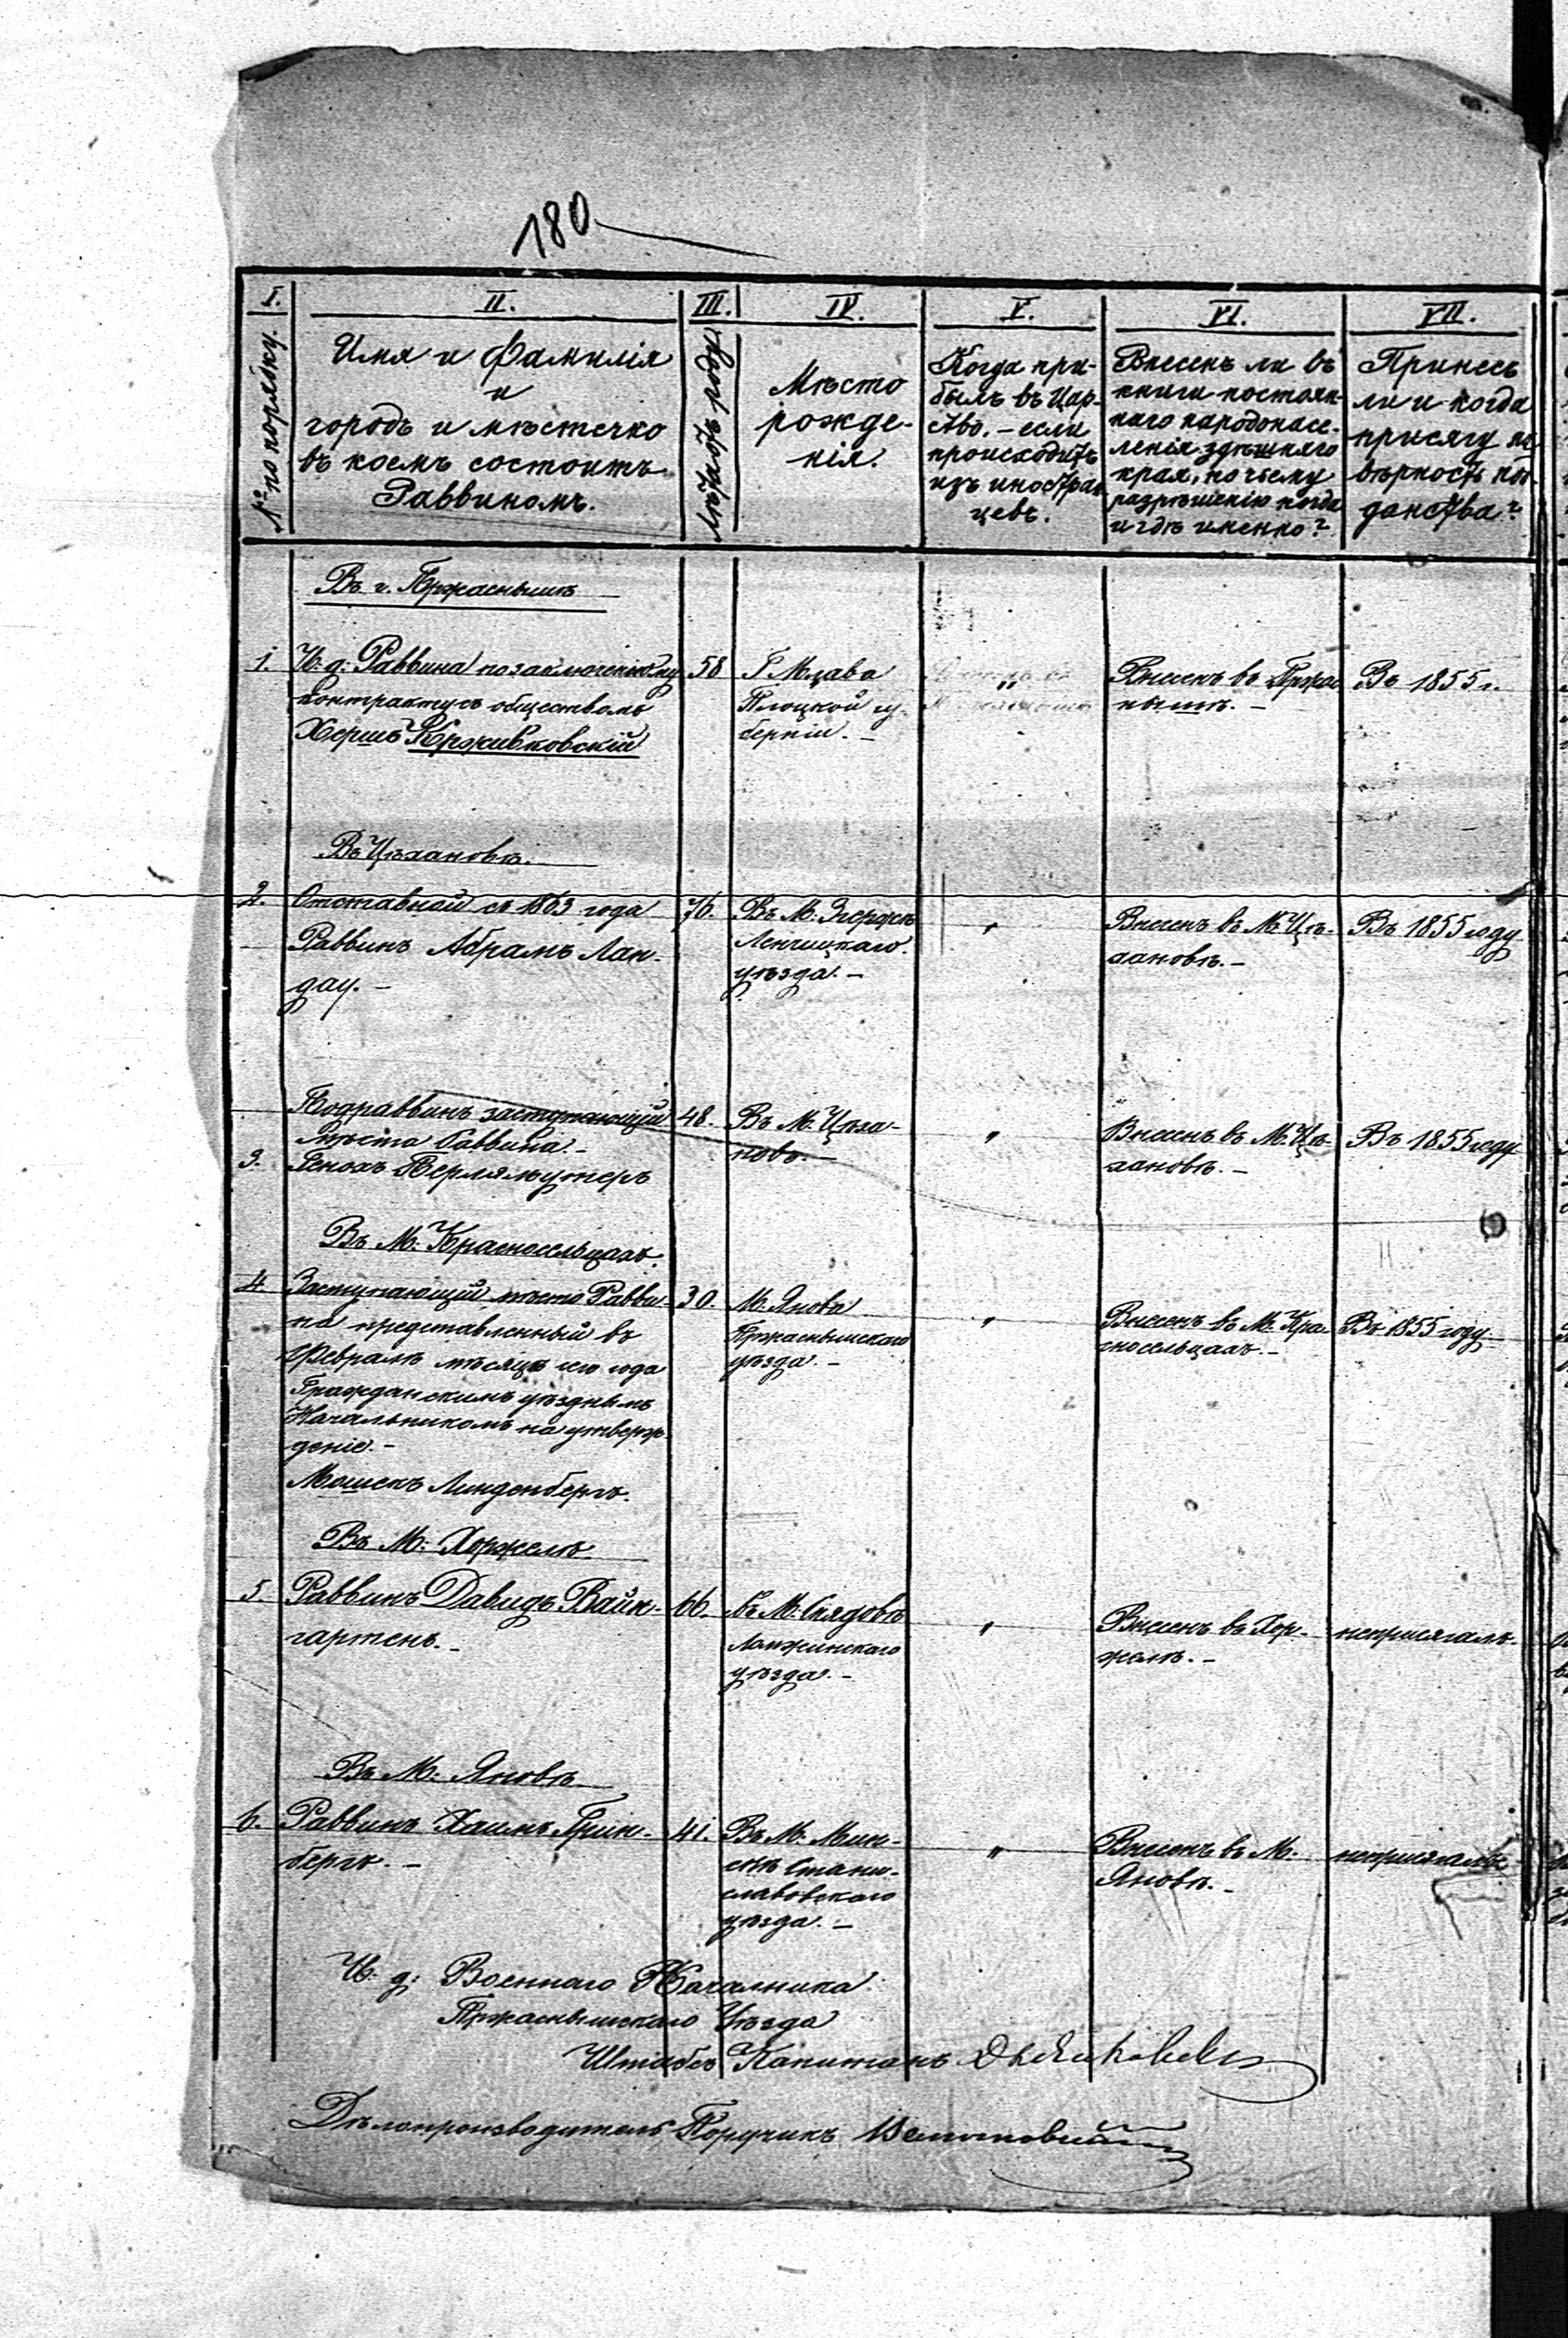 180
I.
II.
III.
IV.
V.
VI.
VII.
№ по порядку.
Имя и Фамилія
и
городъ и мѣстечко
въ коемъ состоитъ
Раввиномъ.
Лѣтъ отъ роду
Мѣсто
рожде-
нія.
Когда при-
былъ въ Цар-
ство. – если
происходитъ
изъ иностран
цевъ.
Внесенъ ли въ
книги постоян-
наго народонасе-
ленія здѣшняго
края, по чьему
разрѣшенію когда
и гдѣ именно?
Принесъ
ли и когда
присягу на
вѣрность под-
данства?
Въ г. Пржаснышѣ
1.
И. д. Раввина по заключенному
контракту съ обществомъ
Хершъ Крживковскій
58
Г. Млава
Плоцкой гу-
берніи. –
"
Внесенъ въ Пржас
нышѣ. –
Въ 1855 г.
Въ Цѣхановѣ.
2.
Отставной съ 1863 года
Раввинъ Абрамъ Лан-
дау. –
76.
Въ М. Згержѣ
Ленчицкаго
уѣзда. –
"
Внесенъ въ М. Цѣ-
хановѣ. –
Въ 1855 году
Подраввинъ заступающій
мѣсто Раввина. –
3.
Генохъ Перлямутеръ
48.
Въ М. Цѣха-
новѣ. –
"
Внесенъ въ М. Цѣ-
хановѣ. –
Въ 1855 году
Въ М. Красносельцахъ.
4.
Заступающій мѣсто Равви-
на представленный въ
Февралѣ мѣсяцѣ сего года
Гражданскимъ уѣзднымъ
Начальникомъ на утверж-
деніе. –
Мошекъ Линденбергъ.
30.
М. Янова
Пржаснышскаго
уѣзда. –
"
Внесенъ въ М. Кра-
сносельцахъ. –
Въ 1855 году
Въ М. Хоржелѣ
5.
Раввинъ Давидъ Вайн-
гартенъ. –
66.
Въ М. Снядовѣ
Ломжинскаго
уѣзда. –
"
Внесенъ въ Хор-
желѣ. –
неприсягалъ
Въ М. Яновѣ
6.
Раввинъ Хаимъ Грин-
бергъ. –
41.
Въ М. Мин-
скѣ Стани-
славовскаго
уѣзда. –
"
Внесенъ въ М.
Яновѣ. –
неприсягалъ
И. д. Военнаго Начальника
Пржаснышскаго Уѣзда
Штабсъ Капитанъ
Дѣлопроизводитель Поручикъ